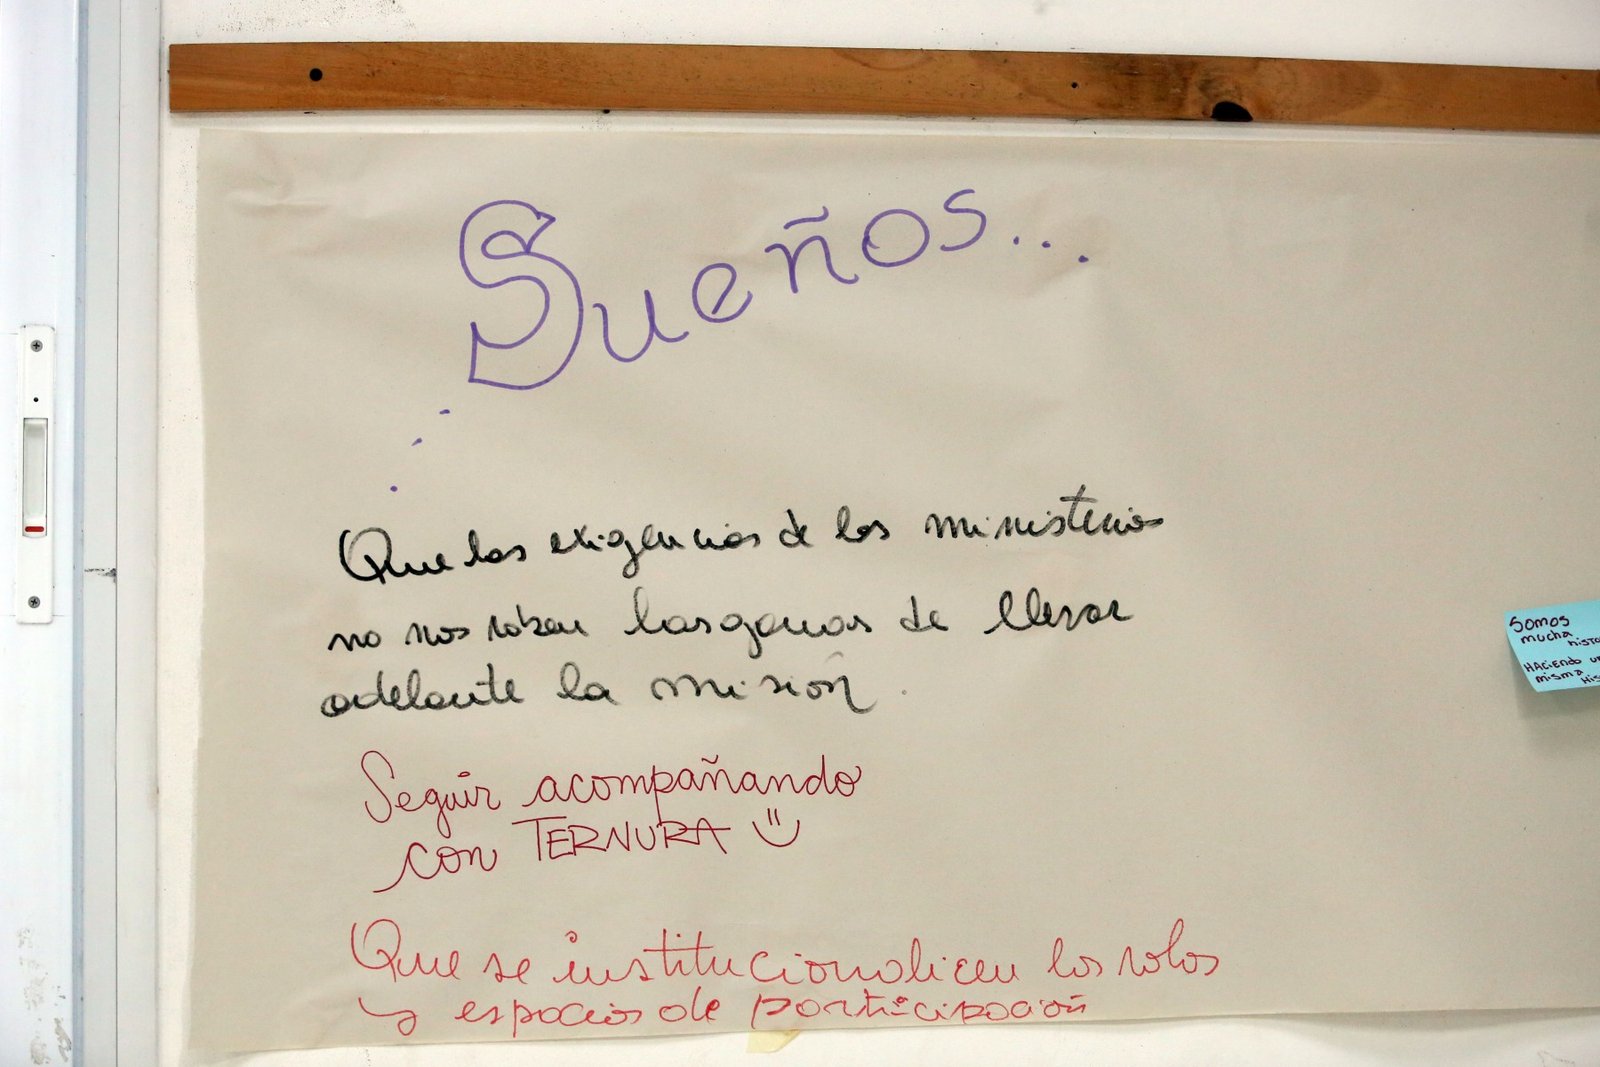 Sueños...
Que las exigencias de los ministerios
no nos roben las ganas de llevar
adelante la misión.
Seguir acompañando
con TERNURA
Que se institucionalicen los roles
y espacios de participación
Somos
mucha
HACIENDO
misma